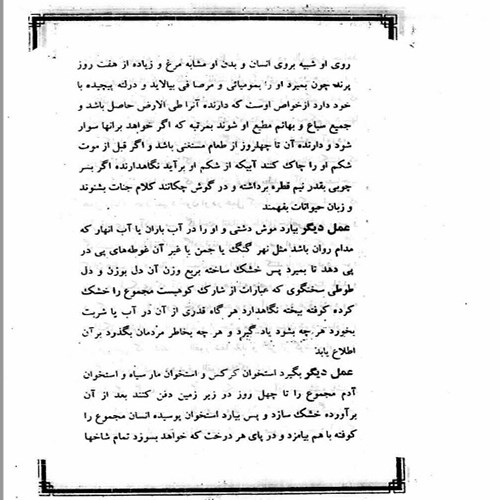 روی او شبیه بروی انسان و بدن او مشابه مرغ و زیاده از هفت روز
پرند چون بمیرد او را بمومیائی و مرصا فی بیالاید و درلته پیچیده با
خود دارد ازخواص اوست که دارنده آنرا طی الارض حاصل باشد و
جمیع سباع و بهائم مطیع او شوند بمرتبه که اگر خواهد برانها سوار
شود و دارنده آن تا چهلروز از طعام مستغنی باشد و اگر قبل از موت
شکم او را چاک کنند آبیکه از شکم او برآید نگاهدارنده اگر بسر
چوبی بقدر نیم قطره برداشته و در گوش چکانند کلام جنات بشنوند
و زبان حیوانات بفهمند
عمل دیگر بیارد موش دشتی و او را در آب باران یا آب انهار که
مدام روان باشد مثل نهر گنگ یا جمن یا غیر آن غوطه‌های پی در
پی دهد تا بمیرد پس خشک ساخته بربع وزن آن دل بوزن و دل
طوطی سخنگوی که عبارات از شارک کوهیست مجموع را خشک
کرده کوفته بیخته نگاهدارد هر گاه قدری از آن در آب یا شربت
بخورد هر چه بشود یاد گیرد و هر چه بخاطر مردمان بگذرد برآن
اطلاع یابد
عمل دیگر بگیرد استخوان کرکس و استخوان مار سیاه و استخوان
آدم مجموع را تا چهل روز در زیر زمین دفن کنند بعد از آن
برآورده خشک سازد و پس بیارد استخوان پوسیده انسان مجموع را
کوفته با هم بیامزد و در پای هر درخت که خواهد بسوزد تمام شاخها